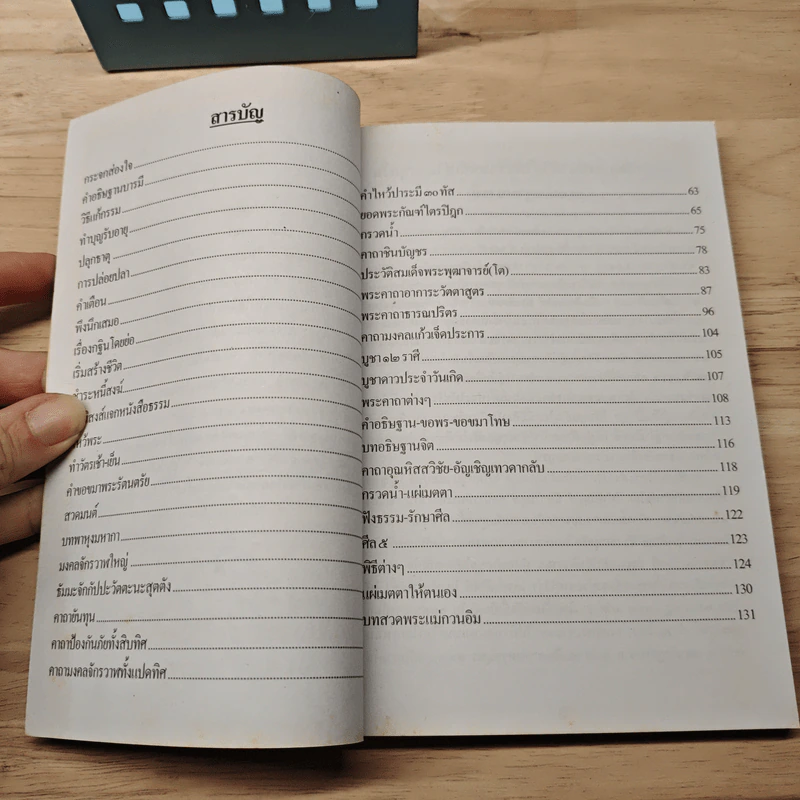 สารบัญ
กระจกส่องใจ
คำอธิษฐานบารมี
วิธีแก้กรรม
ทำบุญรับอายุ
ปลุกธาตุ
การปล่อยปลา
คำเตือน
พึงนึกเสมอ
เรื่องกฐินโดยย่อ
เริ่มสร้างชีวิต
ชำระหนี้สงฆ์
สงส์แจกหนังสือธรรม
ไหว้พระ
ทำวัตรเช้า-เย็น
คำขอขมาพระรัตนตรัย
สวดมนต์
บทพาหุงมหากา
มงคลจักรวาฬใหญ่
ธัมมะจักกัปปะวัตตะนะสุตตัง
คาถายันทุน
คาถาป้องกันภัยทั้งสิบทิศ
คาถามงคลจักรวาฬทั้งแปดทิศ
คำไหว้ปาระมี ๓๐ ทัส 63
ยอดพระกัณฑ์ไตรปิฎก 65
กรวดน้ำ 75
คาถาชินบัญชร 78
ประวัติสมเด็จพระพุฒาจารย์(โต) 83
พระคาถาอาการะวัตตาสูตร 87
พระคาถาธารณปริตร 96
คาถามงคลแก้วเจ็ดประการ 104
บูชา ๑๒ ราศี 105
บูชาดาวประจำวันเกิด 107
พระคาถาต่างๆ 108
คำอธิษฐาน-ขอพร-ขอขมาโทษ 113
บทอธิษฐานจิต 116
คาถาอุณหิสสวิชัย-อัญเชิญเทวดากลับ 118
กรวดน้ำ-แผ่เมตตา 119
ฟังธรรม-รักษาศีล 122
ศีล ๕ 123
พิธีต่างๆ 124
แผ่เมตตาให้ตนเอง 130
บทสวดพระแม่กวนอิม 131